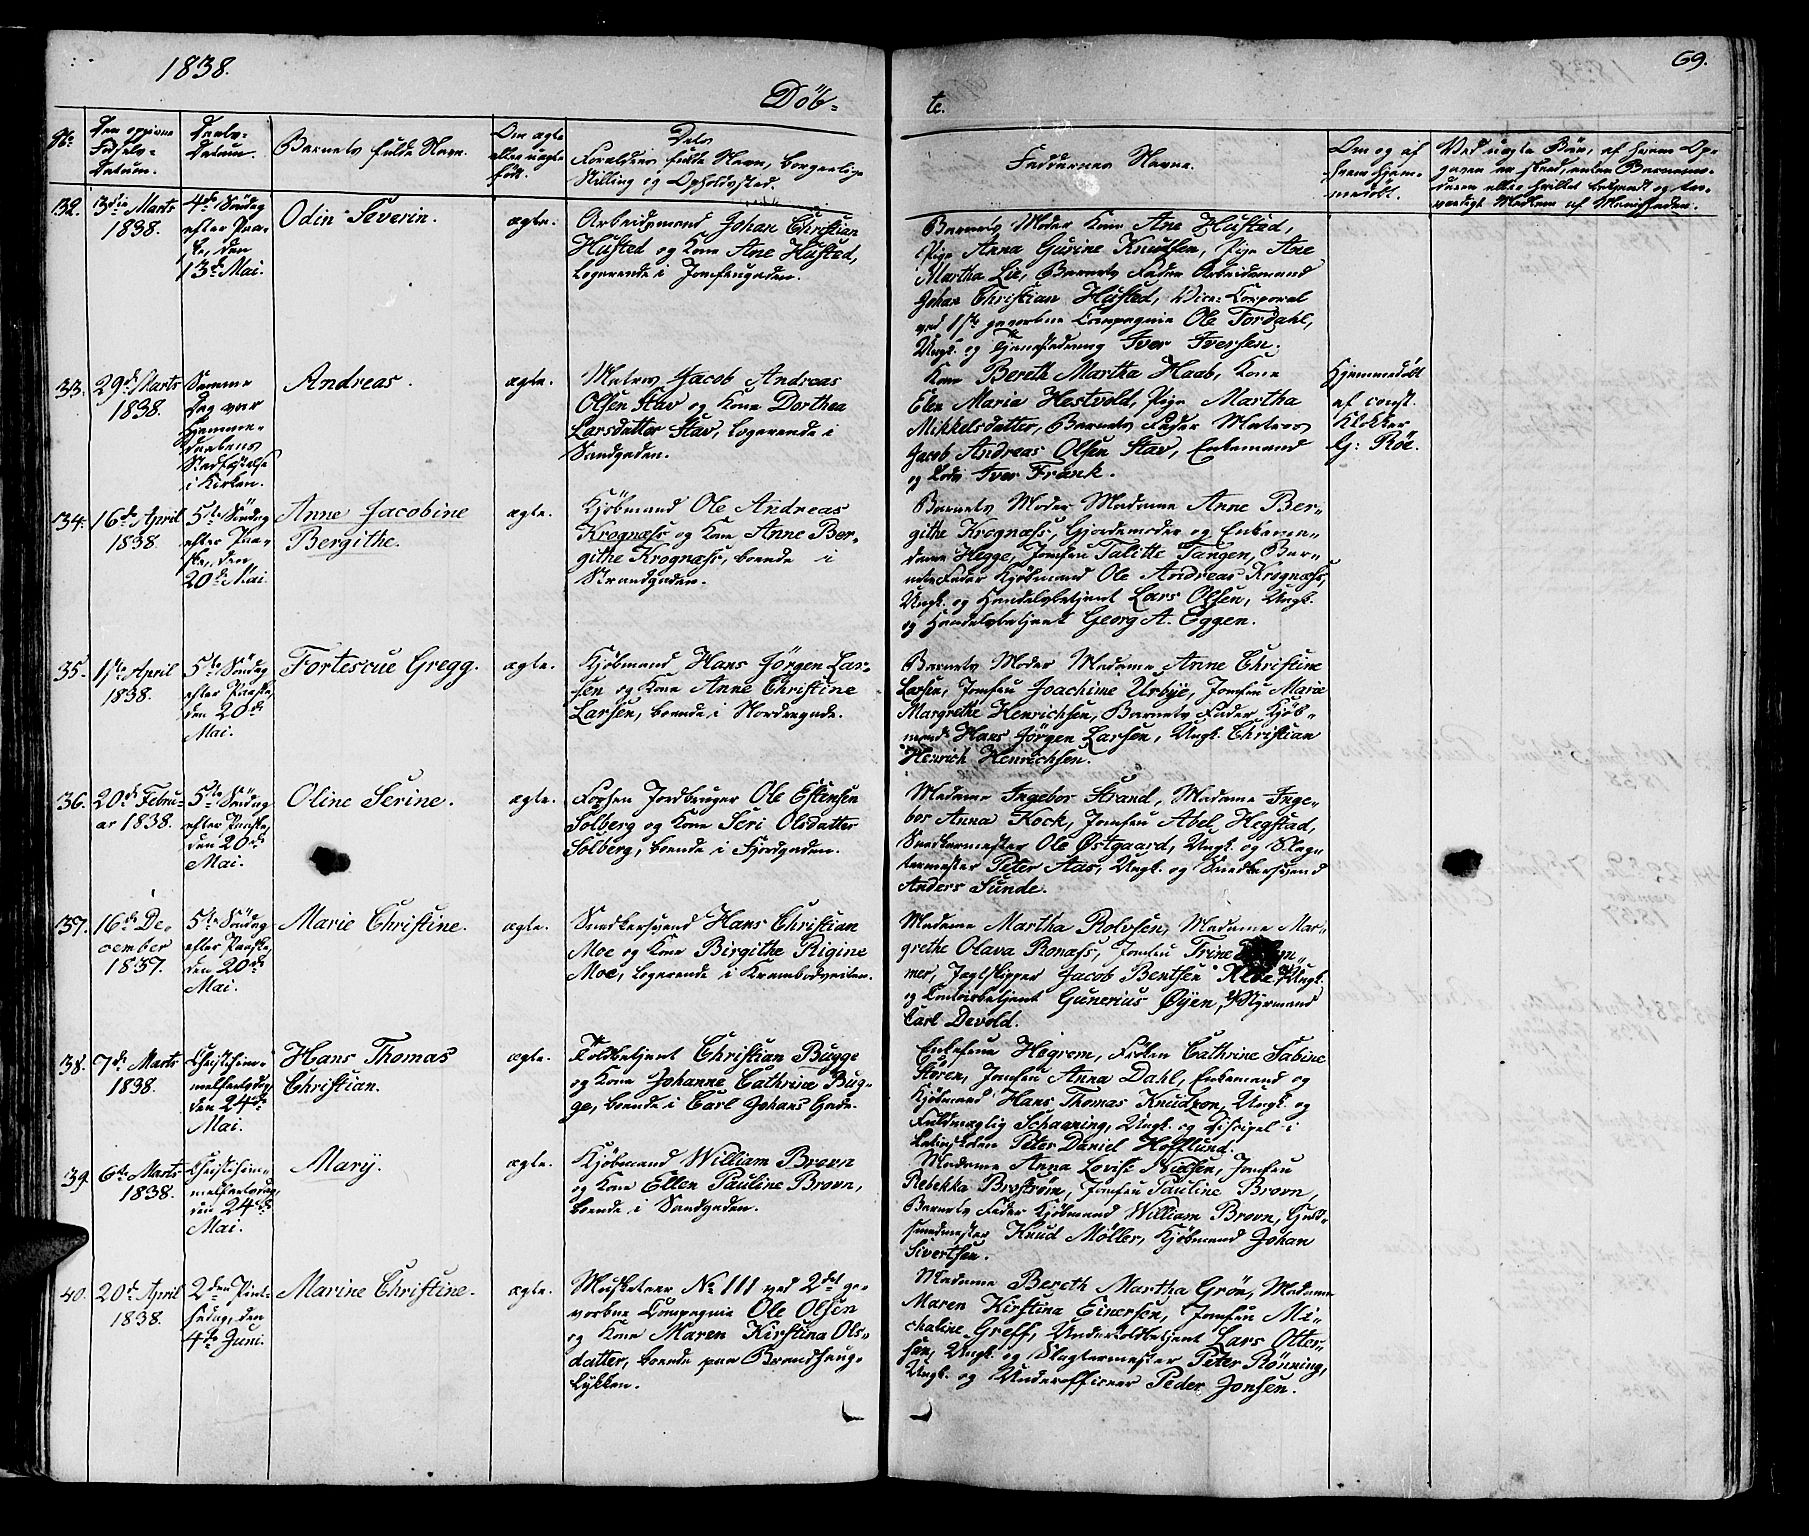 1838.
69.
Döb-
te.
No
Den opgivne Fødsels-Datum.
Daabs-Datum.
Barnets fulde Navn.
Om ægte eller uægte født.
Dets Forældres fulde Navn, borgerlige Stilling og Opholdssted.
Faddernes Navne.
Om og af hvem hjemmedøbt.
32. 3die Marts 1838.
4de Søndag efter Paaske, den 13de Mai.
Odin Severin.
ægte.
Arbeidsmand Johan Christian
Husted og Kone Ane Husted,
logerende i Jomfrugaden.
Barnets Moder Kone Ane Husted,
Pige Anna Gurine Knudsen, Pige Ane
Martha Lie, Barnets Fader Arbeidsmand
Johan Christian Husted, Vice-Corporal
ved 1ste gevorbne Compagnie Ole Fordahl,
Ungk. og Tjenestedreng Iver Iversen.
33. 29de Marts 1838.
Samme Dag var Hjemmedaabens Stadfæstelse i Kirken.
Andreas.
ægte.
Matros Jacob Andreas
Olsen Stav og Kone Dorthea
Larsdatter Stav, logerende i
Sandgaden.
Kone Bereth Martha Haab, Kone
Elen Maria Hestvold, Pige Martha
Mikkelsdatter, Barnets Fader Matros
Jacob Andreas Olsen Stav, Enkemand
og Lods Iver Frank.
Hjemmedøbt
af const.
Klokker
G: Röe.
34. 16de April 1838.
5te Søndag efter Paaske, den 20de Mai.
Anne Jacobine
Bergithe.
ægte.
Kjøbmand Ole Andreas
Krognæss og Kone Anne Ber-
githe Krognæss, boende i
Strandgaden.
Barnets Moder Madame Anne Ber-
githe Krognæss, Gjordemoder og Enkema-
dame Hegge, Jomfru Talitte Tangen, Bar-
nets Fader Kjøbmand Ole Andreas Krognæss,
Ungk. og Handelsbetjent Lars Olsen, Ungk.
og Handelsbetjent Georg A. Eggen.
35. 1ste April 1838.
5te Søndag efter Paaske, den 20de Mai.
Fortescue Gregg.
ægte.
Kjøbmand Hans Jørgen Lar-
sen og Kone Anne Christine
Larsen, boende i Nordregade.
Barnets Moder Madame Anne Christine
Larsen, Jomfru Joachime Urbye, Jomfru Maria
Margrethe Henrichsen, Barnets Fader Kjøb-
mand Hans Jørgen Larsen, Ungk. Christian
Henrich Henrichsen.
36. 20de Febru-
ar 1838.
5te Søndag efter Paaske, den 20de Mai.
Oline Serine.
ægte.
Forhen Jordbruger Ole Estensen
Solberg og Kone Seri Olsdatter
Solberg, boende i Fjordgaden.
Madame Ingebor Strand, Madame Inge-
bor Anna Kock, Jomfru Abel Hegstad,
Snedkermester Ole Østgaard, Ungk. og Slag-
termester Peter Aas, Ungk. og Snedkersvend
Anders Sunde.
37. 16de De-
cember
1837.
5te Søndag efter Paaske, den 20de Mai.
Marie Christine.
ægte.
Snedkersvend Hans Christian
Moe og Kone Birgithe Rigine
Moe, logerende i Krambodveiten.
Madame Martha Rolvsen, Madame Mar-
grethe Olava Ronæss, Jomfru Trine
mer, Jagtskipper Jacob Bentsen Ungk.
og Contoirbetjent Gunerius Øyen, Styrmand
Carl Devold.
38. 7de Marts 1838.
Christi Him-
melfartsdag,
den 24de
Mai.
Hans Thomas
Christian.
ægte.
Toldbetjent Christian Bugge
og Kone Johanne Cathrine Bug-
ge, boende i Carl Johans Gade.
Enkefrue Hegrem, Frøken Cathrine Sabine
Støren, Jomfru Anna Dahl, Enkemand og
Kjøbmand Hans Thomas Knudzon, Ungk. og
Fuldmægtig Schavning, Ungk. og Discipel i
Latinskolen Peter Daniel Hofflund.
39. 6te Marts 1838.
Christi Him-
melfartsdag,
den 24de
Mai.
Mary.
ægte.
Kjøbmand William Brovn
og Kone Ellen Pauline Brovn,
boende i Sandgaden.
Madame Anna Lovise Nielsen, Jomfru
Rebekka Brostrøm, Jomfru Pauline Brovn,
Barnets Fader Kjøbmand William Brovn, Guld-
smedmester Knud Møller, Kjøbmand Johan
Sivertsen.
40. 20de April 1838.
2den Pint-
sedag, den
4de Juni.
Marine Christine.
ægte.
Musketeer No 111 ved 2det ge-
vorbne Compagnie Ole Olsen
og Kone Maren Kirstina Ols-
datter, boende paa Brandhaug-
Lykken.
Madame Bereth Martha Grön, Madame
Maren Kirstina Einersen, Jomfru Mi-
chaline Greff, Undertoldbetjent Lars Otter-
sen, Ungk. og Slagtermester Peter Rönning,
Ungk. og Underofficeer Peder Jonsen.